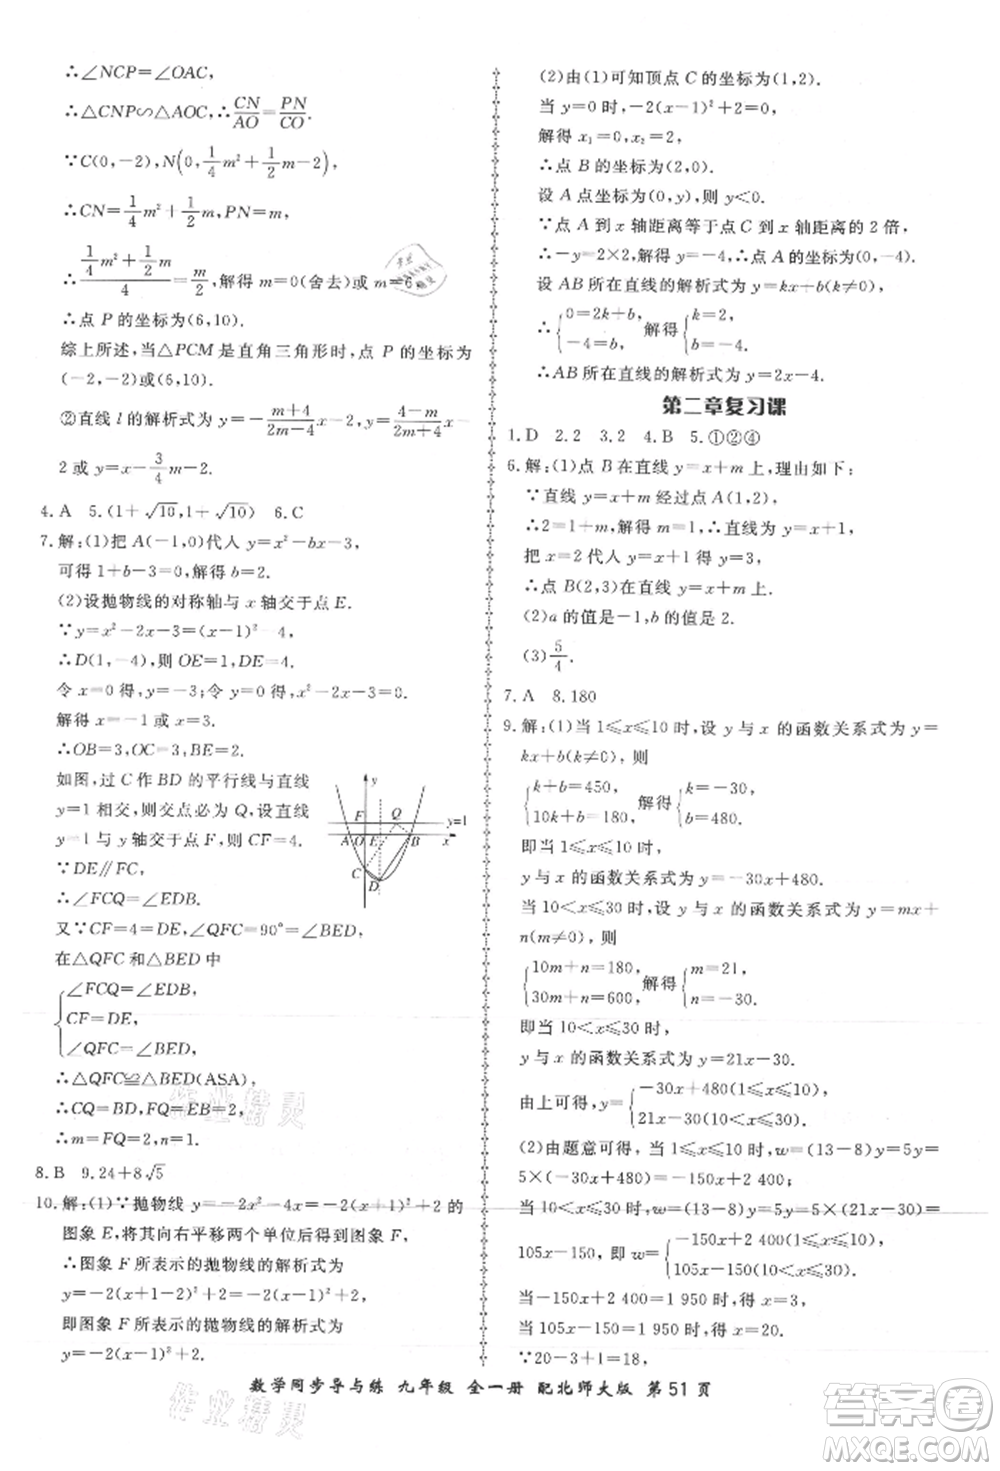 ∴∠NCP=∠OAC,
∴△CNP∽△AOC,∴CN/AO=PN/CO.
∵C(0,-2),N(0,1/4m²+1/2m-2),
∴CN=1/4m²+1/2m,PN=m,
∴(1/4m²+1/2m)/4=m/2,解得 m=0(舍去)或 m=6,
∴点 P 的坐标为(6,10).
综上所述,当△PCM 是直角三角形时,点 P 的坐标为
(-2,-2)或(6,10).
②直线 l 的解析式为 y=(m+4)/(2m-4)x-2,y=(4-m)/(2m+4)x-
2或 y=-3/4x-2.
4.A 5.(1+√10,1+√10) 6.C
7.解:(1)把 A(-1,0)代人 y=x²-bx-3,
可得 1+b-3=0,解得 b=2.
(2)设抛物线的对称轴与 x 轴交于点 E.
∵y=x²-2x-3=(x-1)²-4,
∴D(1,-4),则 OE=1,DE=4.
令 x=0 得,y=-3;令 y=0 得,x²-2x-3=0,
解得 x=-1 或 x=3.
∴OB=3,OC=3,BE=2.
如图,过 C 作 BD 的平行线与直线
y=1 相交,则交点必为 Q,设直线
y=1 与 y 轴交于点 F,则 CF=4.
∵DE∥FC,
∴∠FCQ=∠EDB.
又∵CF=4=DE,∠QFC=90°=∠BED,
在△QFC 和△BED 中
{∠FCQ=∠EDB,
CF=DE,
∠QFC=∠BED,
∴△QFC≌△BED(ASA),
∴CQ=BD,FQ=EB=2,
∴m=FQ=2.
y
F
Q
y=1
A
O
E
B
x
C
D
8.B 9.24+8√5
10.解:(1)∵抛物线 y=-2x²-4x=-2(x+1)²+2 的
图象 E,将其向右平移两个单位后得到图象 F,
∴图象 F 所表示的抛物线的解析式为
y=-2(x+1-2)²+2,
即图象 F 所表示的抛物线的解析式为
y=-2(x-1)²+2.
(2)由(1)可知顶点 C 的坐标为(1,2).
当 y=0 时,-2(x-1)²+2=0,
解得 x₁=0,x₂=2.
∴点 B 的坐标为(2,0).
设 A 点坐标为(0,y),则 y<0.
∵点 A 到 x 轴距离等于点 C 到 x 轴距离的 2 倍,
∴-y=2×2,解得 y=-4,∴点 A 的坐标为(0,-4).
设 AB 所在直线的解析式为 y=kx+b(k≠0),
∴{0=2k+b, -4=b, 解得{k=2, b=-4.
∴AB 所在直线的解析式为 y=2x-4.
第二章复习课
1.D 2.2 3.2 4.B 5.①②④
6.解:(1)点 B 在直线 y=x+m 上,理由如下:
∵直线 y=x+m 经过点 A(1,2),
∴2=1+m,解得 m=1,∴直线为 y=x+1,
把 x=2 代人 y=x+1 得 y=3,
∴点 B(2,3)在直线 y=x+m 上.
(2)a 的值是-1,b 的值是 2.
(3)5/4.
7.A 8.180
9.解:(1)当 1≤x≤10 时,设 y 与 x 的函数关系式为 y=
kx+b(k≠0),则
{k+b=450, 10k+b=180, 解得{k=-30, b=480.
即当 1≤x≤10 时,
y 与 x 的函数关系式为 y=-30x+480.
当 10<x≤30 时,设 y 与 x 的函数关系式为 y=mx+
n(m≠0),则
{10m+n=180, 30m+n=600, 解得{m=21, n=-30.
即当 10<x≤30 时,
y 与 x 的函数关系式为 y=21x-30.
由上可得,y={-30x+480(1≤x≤10), 21x-30(10<x≤30).
(2)由题意可得,当 1≤x≤10 时,w=(13-8)y=5y=
5×(-30x+480)=-150x+2 400;
当 10<x≤30 时,w=(13-8)y=5y=5×(21x-30)=
105x-150,即 w={-150x+2 400(1≤x≤10), 105x-150(10<x≤30).
当-150x+2 400=1 950 时,得 x=3,
当 105x-150=1 950 时,得 x=20.
∵20-3+1=18,
数学同步导与练 九年级 全一册 配北师大版 第 51 页
作业精灵
作业精灵
答案圈
MXQE.COM